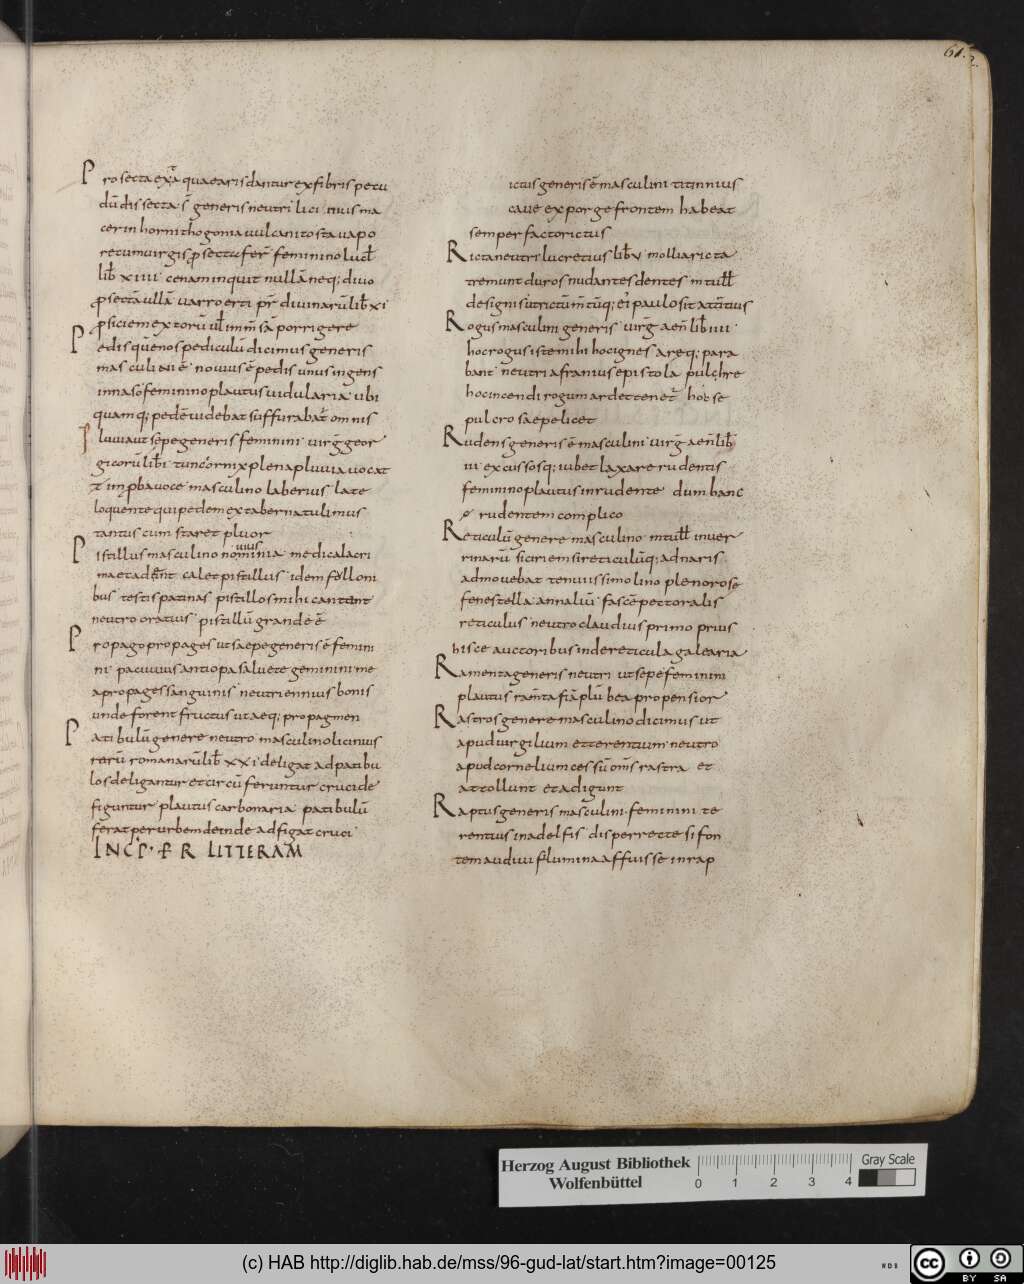 61.
2.
Prosecta extͣ quae aris dantur ex fibris pecu
dū dissecta s̄ generis neutri licinius ma
cer in hornithogonia vulcani tosta vapo
re cum virgis ꝓsectu fer̄ feminino lucł
lib̄ xiiii cenam inquit nullā neq; diuo
ꝓsectā ullā varro erti p̄r diuinarū lib̄ xi
ꝓsiciem extorū uł in m̄sā porrigere
Pedis quē nos pediculū dicimus generis
masculini ē novius ē pedis unus ingens
in naso feminino plautus vidularia ubi
quamq; pedē videbat suffurabat omnis
Pluvia ut sepe generis feminini virḡ geor
gicorū lib̄ i tunc cornix plena pluvia vocat
improba voce masculino laberius late
loquente quipedem extabernatulimus
tantus cum staret pluor
Pistillus masculino nomīnia medicalacri
unius
maetadsint calet pistillus idem felloni
bus testis patinas pistillos mihi cantant
neutro oratius pistillū grande ē
Propago propages ut saepe generis ē femini
ni pacuuius antiopa salvete gemini me
a propages sanguinis neutri ennius bonis
unde forent fructus utaeq; propagmen
Patibulū genere neutro masculino licinius
rerū romanarū lib̄ xxi deligat ad patibu
los deligantur et circū feruntur cruci de
figuntur plautus carbonaria patibulū
ferat per urbem deinde adfigat cruci
INCP̄ · P̄ R LITTERAM
ictus generis ē masculini titinnius
cave exporge frontem habeat
semper factorictus
Ricta neutri lucretius lib̄ v mollia ricta
tremunt duros nudantes dentes m tułł
designis ut rictū m̄tūq; ei paulo sit atātius
Rogus masculini generis virḡ aen̄ lib̄ iiii
hoc rogus iste mihi hoc ignes areq; para
bant neutri afranius epistola pulchre
hoc incendi rogum ardet tenet̄ hos se
pulcro saepelicet
Rudens generis ē masculini virḡ aen̄ lib̄
iii excussosq; iubet laxare rudentis
feminino plautus in rudente dum hanc
rudentem complico
Reticulū genere masculino m tułł in ver
rinarū siciriensi reticulūq; ad naris
admovebat tenuissimo lino plenorose
fenestella annaliū fascē pectoralis
reticulus neutro claudius primo prius
hisce auctoribus inde reticula galearia
Ramenta generis neutri ut sepe feminini
plautus ram̄ta fiā plū bea propensior
Rastros genere masculino dicimus ut
apud virgilium et terentium neutro
apud cornelium ces sū om̄s rastra et
attollunt et adigunt
Raptus generis masculini feminini te
rentius in adelfis disperrecte si fon
tem audivi flumina affuisse in rap
Herzog August Bibliothek
Wolfenbüttel
0 1 2 3 4
Gray Scale
(c) HAB http://diglib.hab.de/mss/96-gud-lat/start.htm?image=00125
cc BY SA